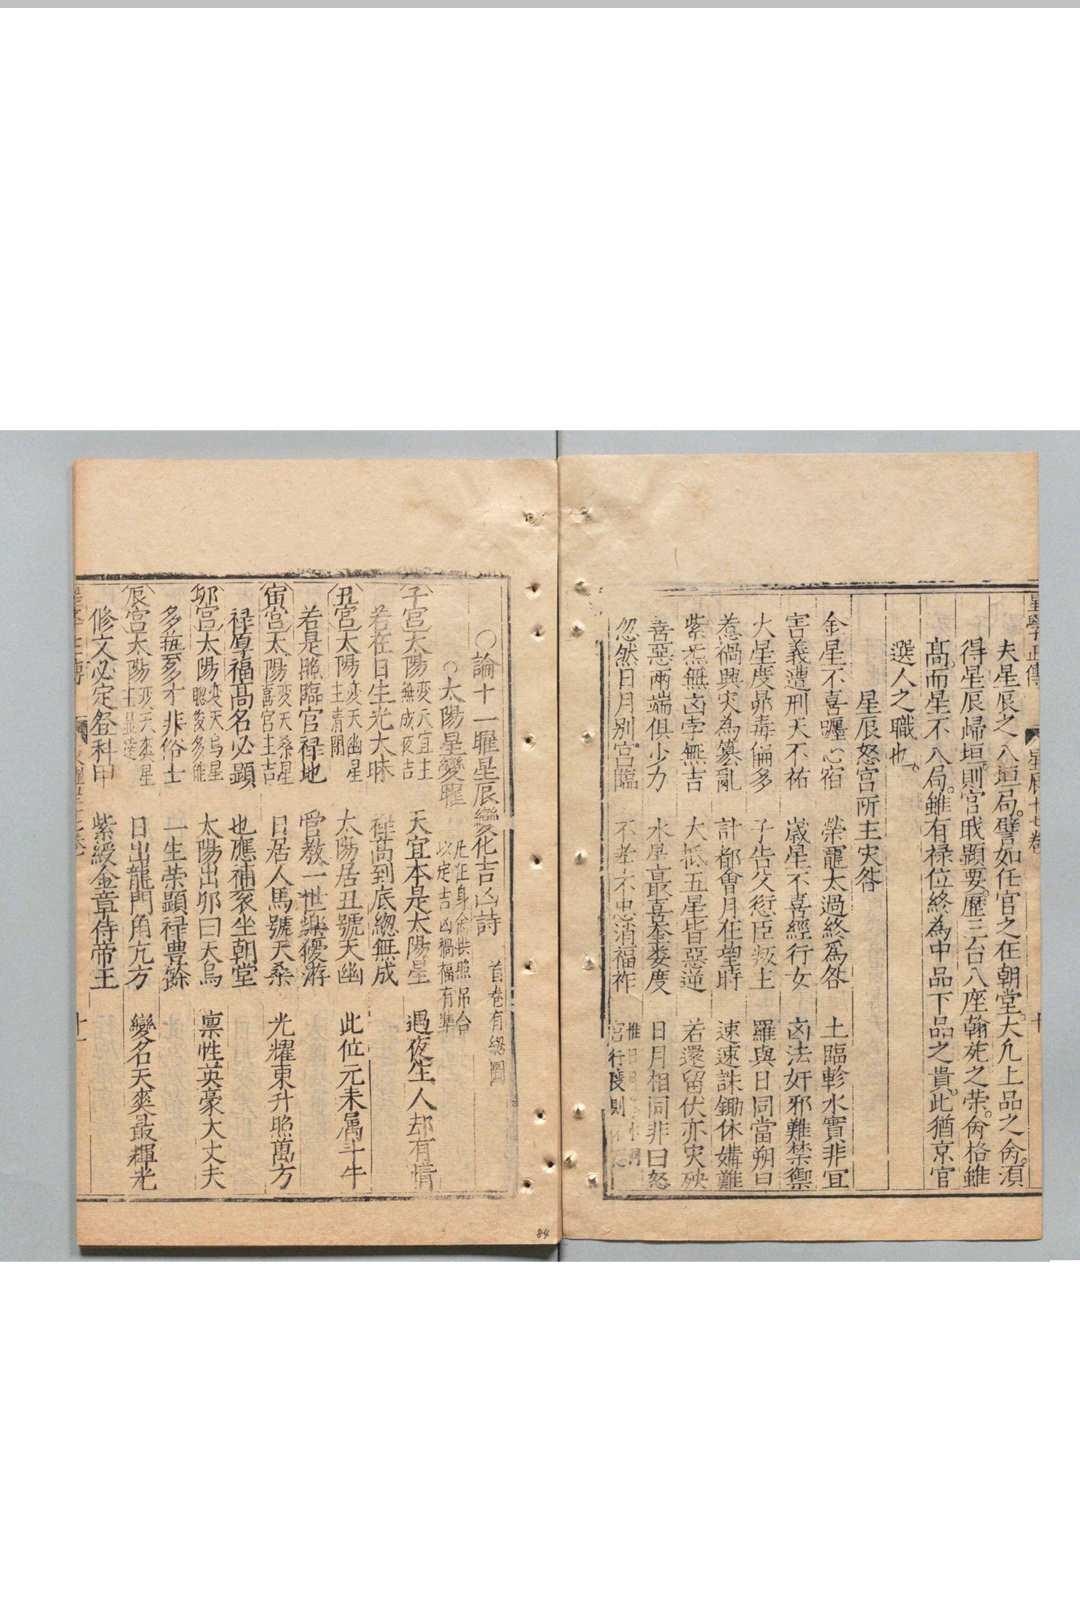 夫星辰之入垣局譬如任官之在朝堂大凢上品之命湏
得星辰歸垣則官職顯要歷三台八座翰苑之荣命格雖
髙而星不入局雖有禄位終為中品下品之貴此猶京官
選人之職也
星辰怒宮所主灾咎
金星不喜𨇾心宿 榮寵太過終爲咎 土臨軫水實非宜
害義遭刑天不祐 歲星不喜經行女 凶法奸邪難禁禦
火星度昴毒偏多 子告父愆臣叛主 羅與日同當朔日
惹禍興灾為篡亂 計都會月在望時 速速誅鋤休媾難
紫炁無凶孛無吉 大抵五星皆惡逆 若還留伏亦灾殃
善惡兩端俱少力 水星最喜奎婁度 日月相同非曰怒
忽然日月別宮臨 不孝不忠消福祚
宮行度則
○論十一曜星辰變化吉凶詩 首卷有緫圖
○太陽星變曜 凡在身命拱照吊合
以定吉凶禍福有準
子宮太陽 变天宜主 無成夜吉 天宜本是太陽星 遇夜生人却有情
若在日生光大昧 禄髙到底緫無成
丑宮太陽 变天幽星 主清閑 太陽居丑號天幽 此位元来属斗牛
若是照臨官禄地 管教一世樂優游
寅宮太陽 变天桑星 喜宮主吉 日居人馬號天桑 光耀東升照萬方
禄厚福髙名必顯 也應補衮坐朝堂
卯宮太陽 变天烏星 聪俊多能 太陽出卯曰天烏 禀性英豪大丈夫
多藝多才非俗士 一生荣顯禄豊餘
辰宮太陽 变天爽星 主显達 日出龍門角亢方 變名天爽最輝光
修文必定登科甲 紫綬金章侍帝王
十一
84